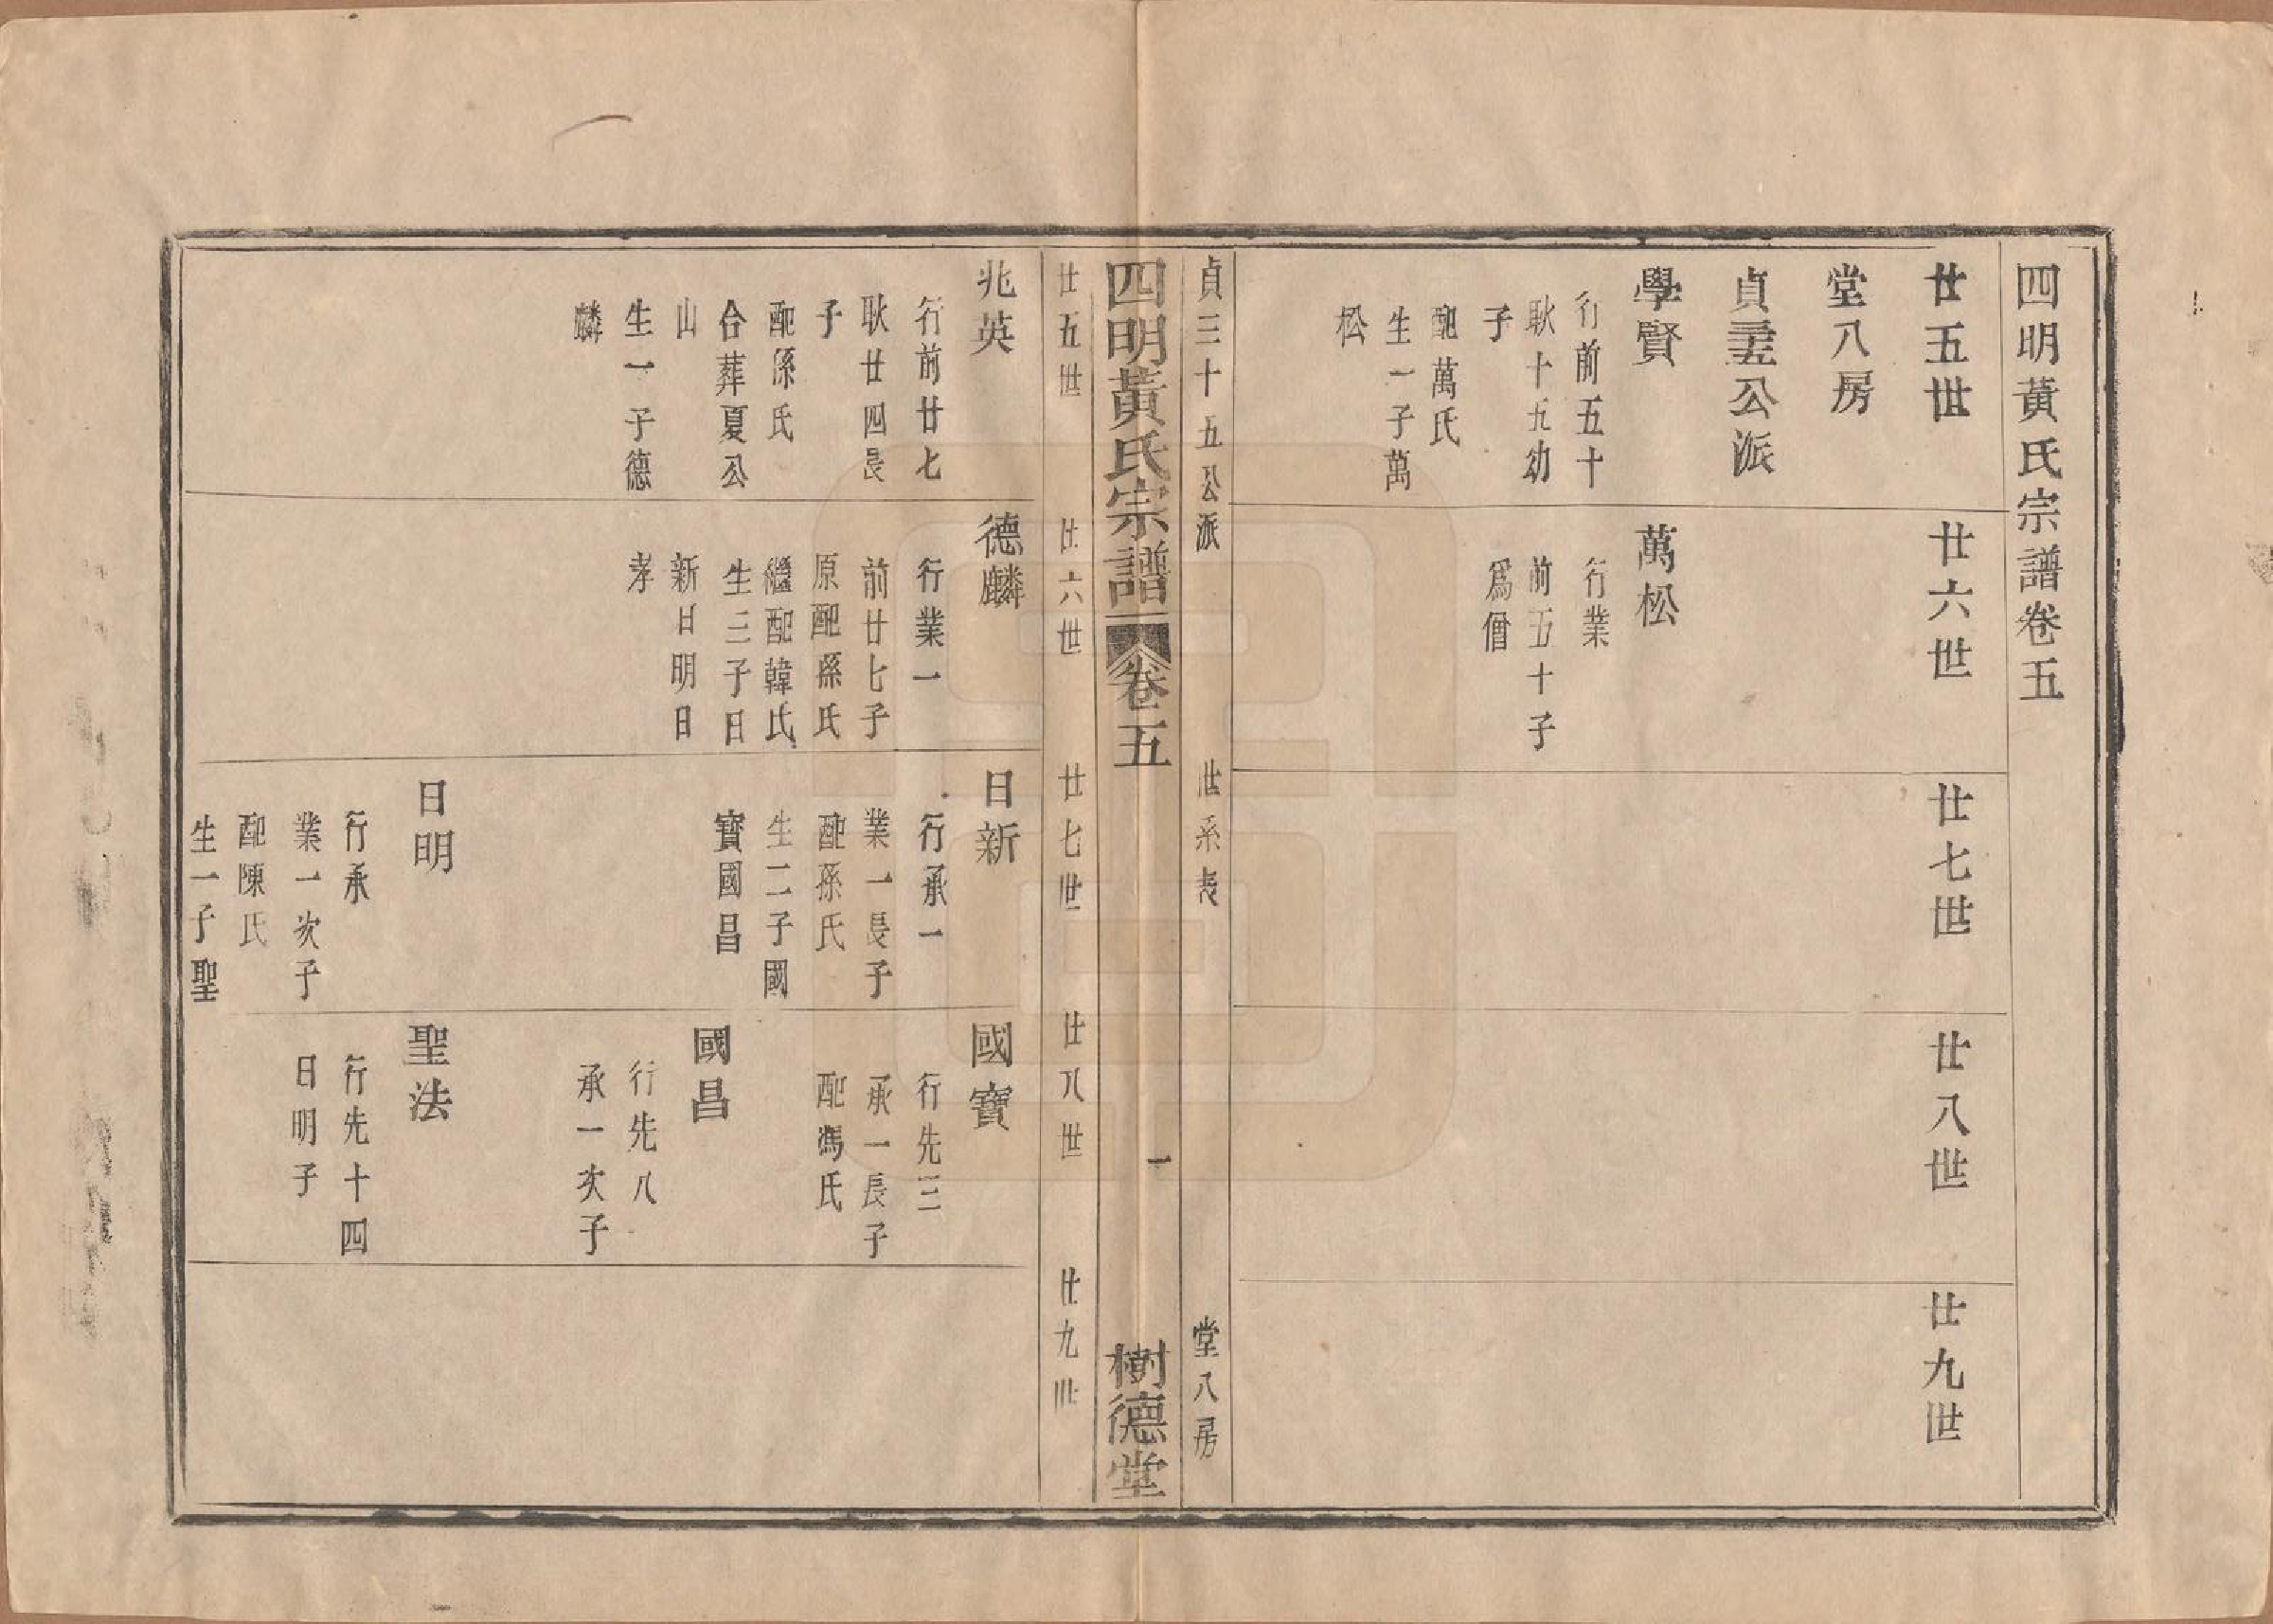 四明黃氏宗譜卷五
廿五世
廿六世
廿七世
廿八世
廿九世
堂八房
貞三十五公派
學賢
行前五十
耿十五幼
子
配萬氏
生一子萬
松
萬松
行業
前五十子
爲僧
貞三十五公派
世系表
堂八房
四明黃氏宗譜
卷五
一
樹德堂
廿五世
廿六世
廿七世
廿八世
廿九世
兆英
行前廿七
耿廿四長
子
配孫氏
合葬夏公
山
生一子德
麟
德麟
行業一
前廿七子
原配孫氏
繼配韓氏
生三子日
新日明日
孝
日新
行承一
業一長子
配孫氏
生二子國
寶國昌
日明
行承
業一次子
配陳氏
生一子聖
國寶
行先三
承一長子
配馮氏
國昌
行先八
承一次子
聖法
行先十四
日明子